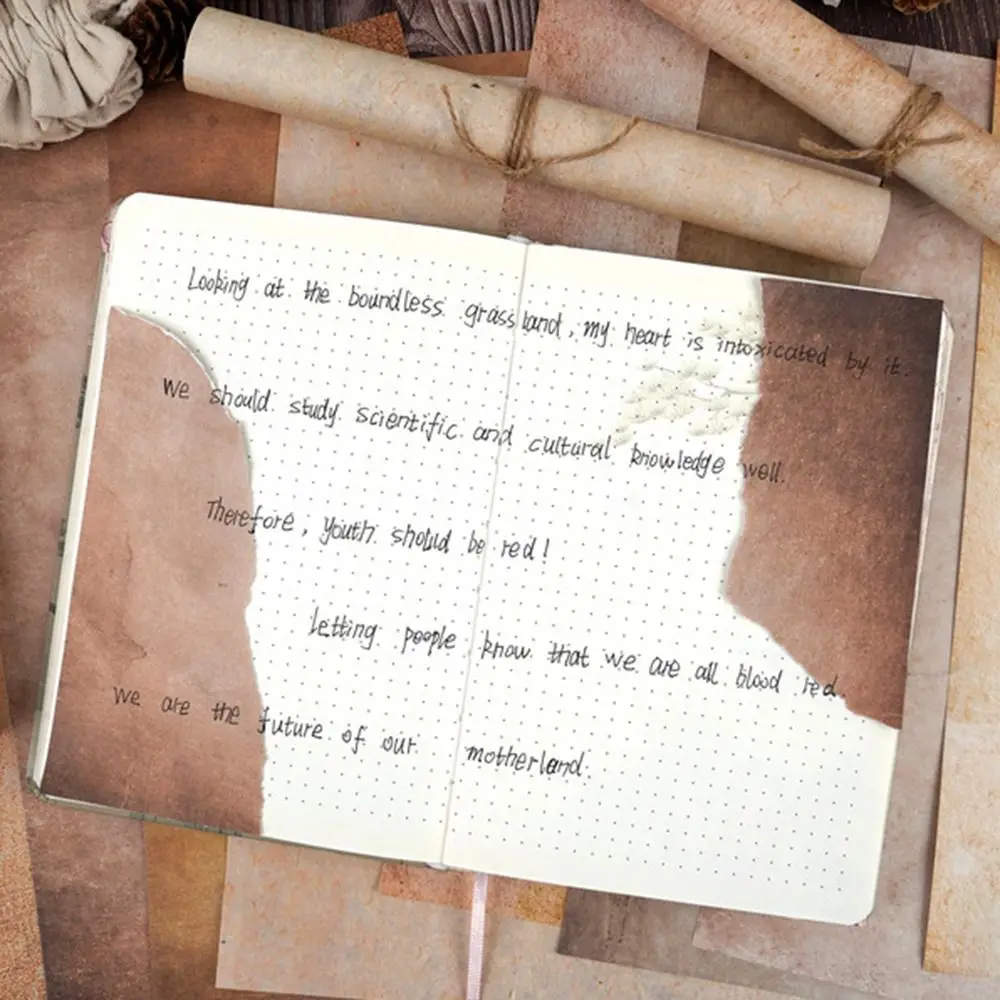 Looking at the boundless grassland, my heart is intoxicated by it.
We should study scientific and cultural knowledge well.
Therefore, youth should be red!
letting people know that we are all blood red.
We are the future of our motherland.